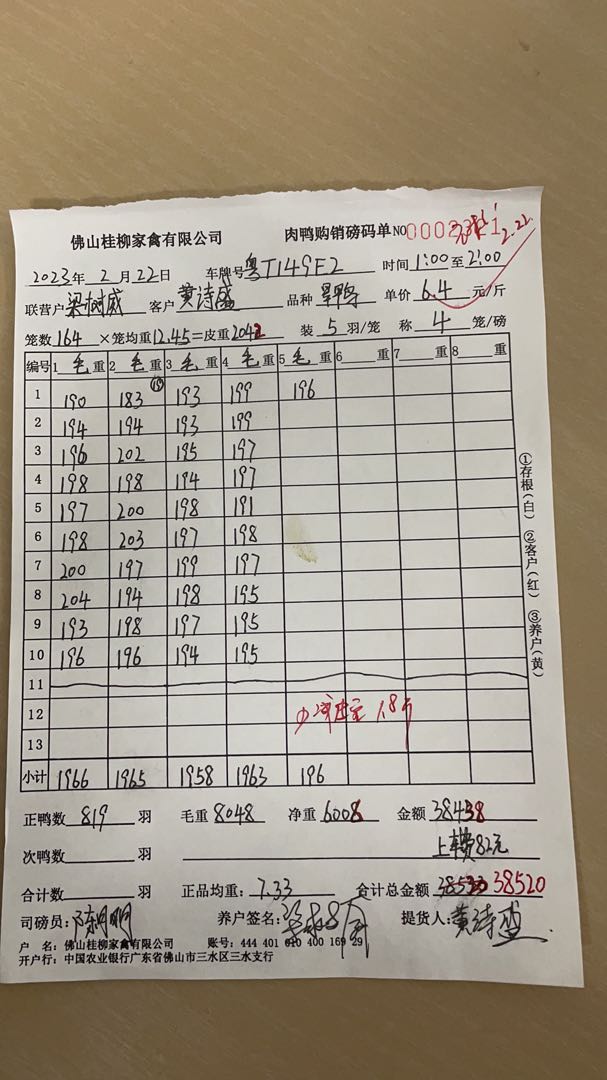 佛山桂柳家禽有限公司 肉鸭购销磅码单 NO 000
2023年 2月 22日 车牌号 粤T149F2 时间 1:00 至 2:00
联营户 梁树威 客户 黄诗盛 品种 单价 6.4 元/斤
笼数 164 ×笼均重 12.45 =皮重 2042 装 5 羽/笼 称 4 笼/磅
编号 1 毛 重 2 毛 重 3 毛 重 4 毛 重 5 毛 重 6 重 7 重 8 重
1 190 183 193 199 196
2 194 194 193 199
3 196 202 195 197
4 198 198 194 197
5 197 200 198 191
6 198 203 197 198
7 200 197 199 197
8 204 194 198 195
9 193 198 197 195
10 196 196 194 195
11
12
13
小计 1966 1965 1958 1963 196
①存根(白) ②客户(红) ③养户(黄)
正鸭数 819 羽 毛重 8048 净重 6006 金额 38438
次鸭数 羽 上车费82元
合计数 羽 正品均重: 7.33 合计总金额 38520
司磅员: 养户签名: 提货人:
户 名: 佛山桂柳家禽有限公司 账号: 444 401 010 400 169 29
开户行: 中国农业银行广东省佛山市三水区三水支行